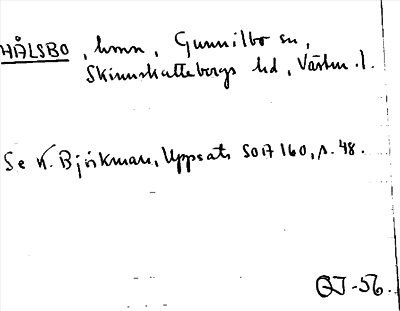 HÅLSBO, hmn, Gunnilbo sn,
Skinnskattebergs hd, Västm. l.
Se K. Björkman, Uppsats SOA 160, s. 48.
GJ-56.